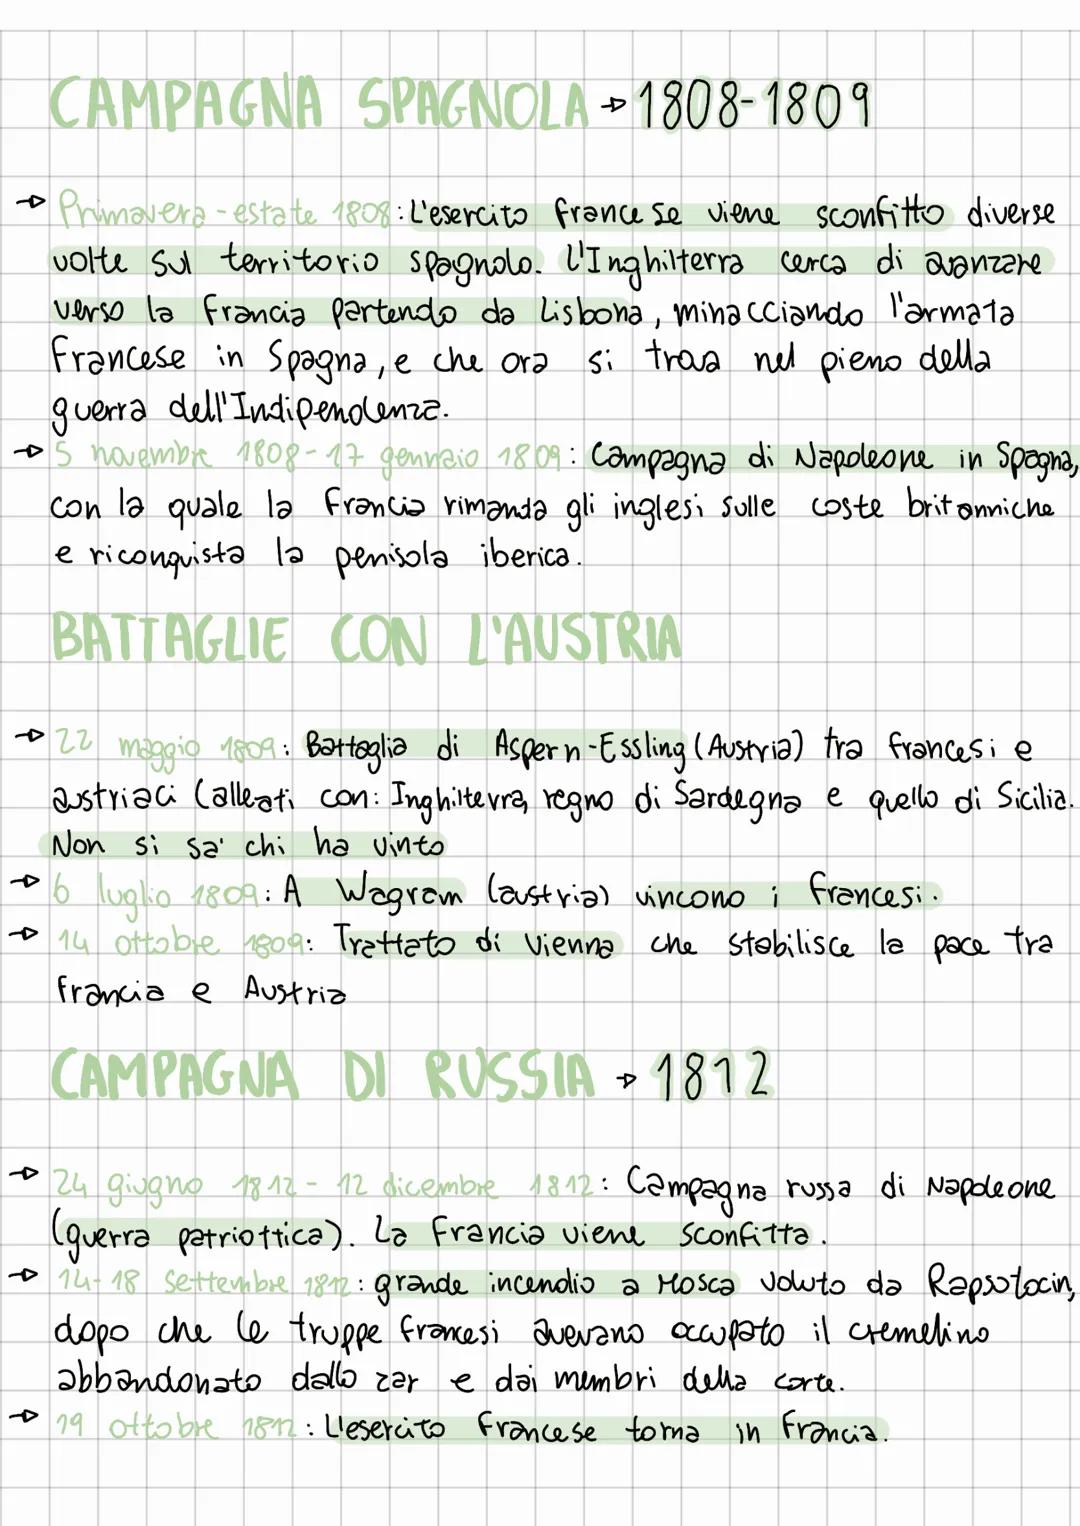 CAMPAGNA SPAGNOLA → 1808-1809
→ Primavera - estate 1808: L'esercito francese viene sconfitto diverse
volte sul territorio spagnolo. L'Inghilterra cerca di avanzare
verso la Francia partendo da Lisbona, minacciando l'armata
francese in Spagna, e che ora si trova nel pieno della
guerra dell'Indipendenza.
→ 5 novembre 1808 - 17 gennaio 1809: Campagna di Napoleone in Spagna,
con la quale la Francia rimanda gli inglesi sulle coste britanniche
e riconquista la penisola iberica.
BATTAGLIE CON L'AUSTRIA
→ 22 maggio 1809: Battaglia di Aspern-Essling (Austria) tra francesi e
austriaci (alleati con: Inghilterra, regno di Sardegna e quello di Sicilia.
Non si sa' chi ha vinto
→ 6 luglio 1809: A Wagram (austria) vincono i francesi.
→ 14 ottobre 1809: Trattato di Vienna che stabilisce la pace tra
Francia e Austria
CAMPAGNA DI RUSSIA → 1812
→ 24 giugno 1812 - 12 dicembre 1812: Campagna russa di Napoleone
(guerra patriottica). La Francia viene sconfitta.
→ 14-18 settembre 1812: grande incendio a Mosca voluto da Rapsotocin,
dopo che le truppe francesi avevano occupato il cremelino
abbandonato dallo zar e dai membri della corte.
→ 19 ottobre 1812: L'esercito francese torna in Francia.